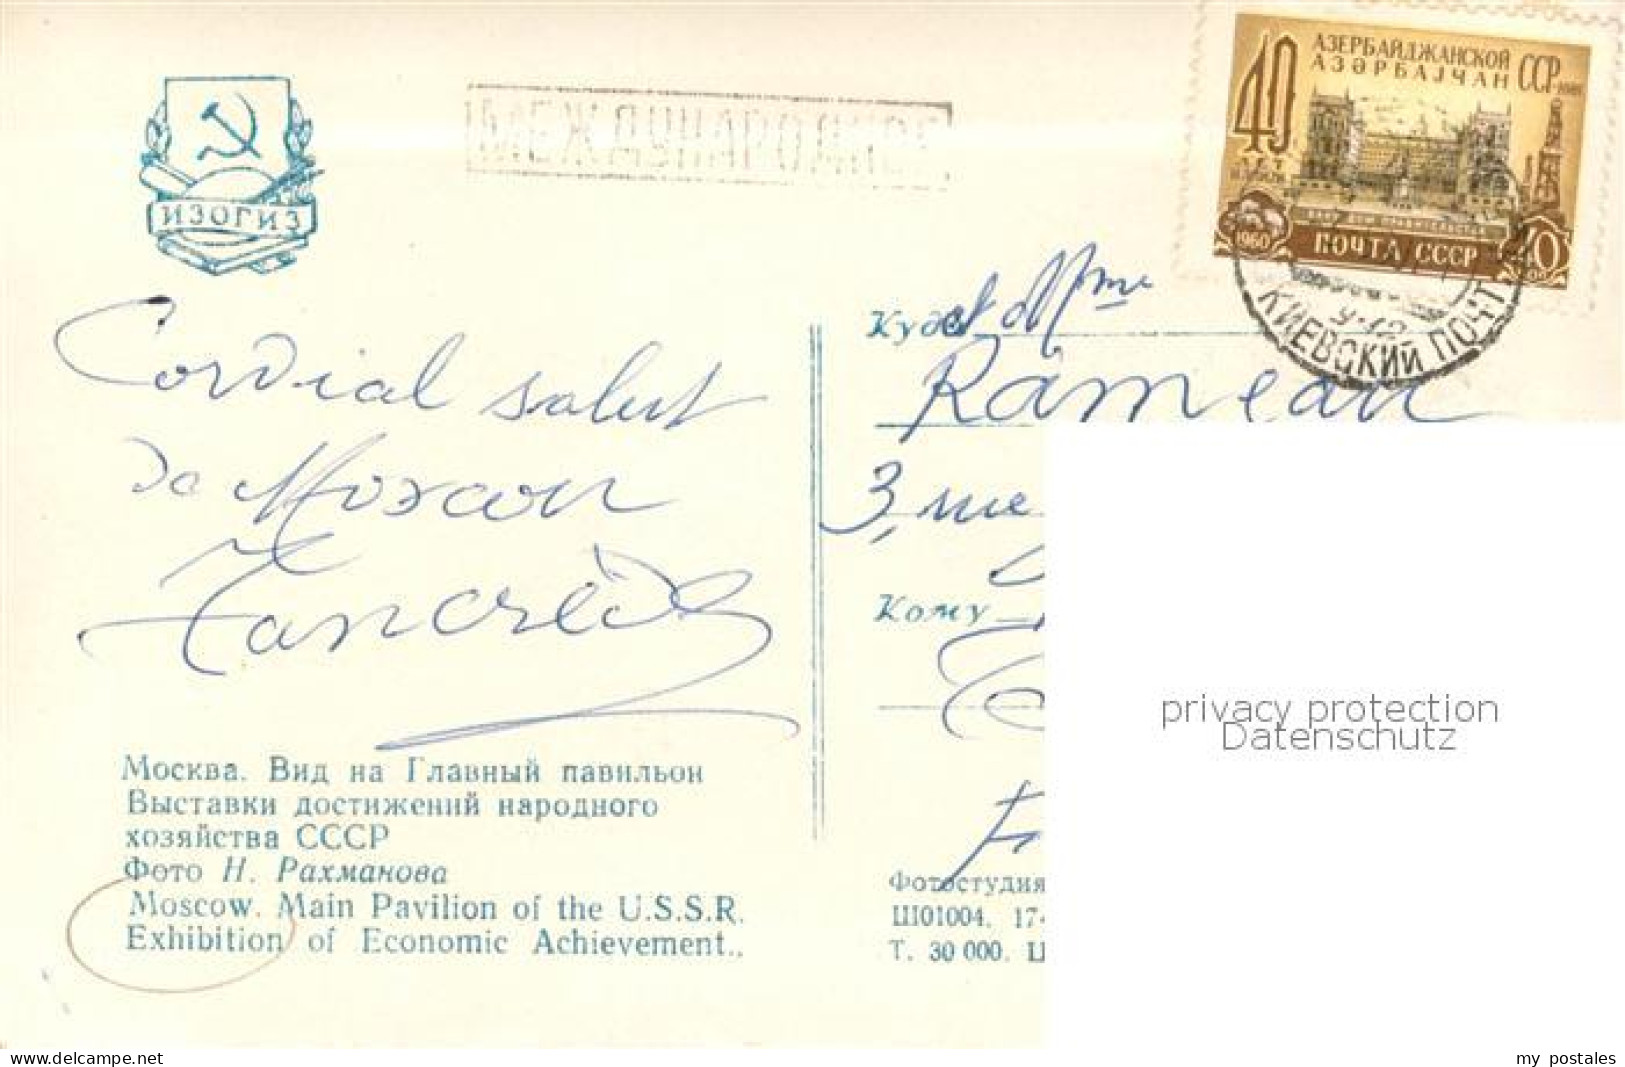 МЕЖДУНАРОДНОЕ
АЗЕРБАЙДЖАНСКОЙ
АЗӘРБАЈҸАН ССР
40
ЛЕТ
1960 ПОЧТА СССР 40
КИЕВСКИЙ ПОЧТ
ИЗОГИЗ
Cordial salut
de Moscou
Tancrède
Куда Mme
Rameau
3, rue
Кому
Москва. Вид на Главный павильон
Выставки достижений народного
хозяйства СССР
Фото Н. Рахманова
Moscow. Main Pavilion of the U.S.S.R.
Exhibition of Economic Achievement..
Фотостудия
Ш01004. 17-
Т. 30 000. Ц
privacy protection
Datenschutz
www.delcampe.net
my_postales